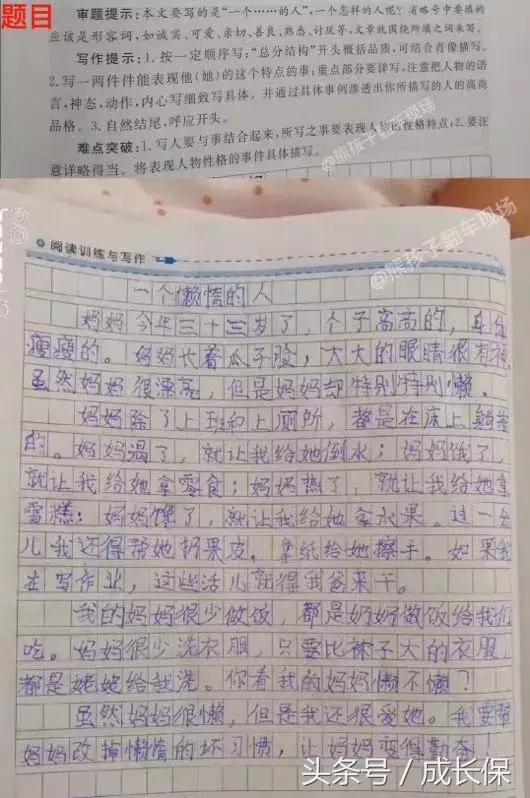 题目
审题提示:本文要写的是“一个……的人”,一个怎样的人呢?省略号中要填的
应该是形容词,如诚实、可爱、亲切、善良、熟悉、讨厌等,文章就围绕所填之词来写。
写作提示:1.按一定顺序写:“总分结构”开头概括品质,可结合肖像描写。
2.写一两件件能表现他(她)的这个特点的事;重点部分要详写,注意把人物的语
言,神态,动作,内心写细致写具体。并通过具体事例渗透出你所描写的人的高尚
品格。3.自然结尾,呼应开头。
难点突破:1.写人要与事结合起来,所写之事要表现人物的性格特点;2.要注
意详略得当。将表现人物性格的事件具体描写。
@熊孩子翻车现场
阅读训练与写作
@熊孩子翻车现场
一个懒惰的人
妈妈今年三十三岁了,个子高高的,身体
瘦瘦的。妈妈长着瓜子脸,大大的眼睛很有神
虽然妈妈很漂亮,但是妈妈却特别特别懒。
妈妈除了上班和上厕所,都是在床上躺着
的。妈妈渴了,就让我给她倒水;妈妈饿了,
就让我给她拿零食;妈妈热了,就让我给她拿
雪糕;妈妈馋了,就让我给她拿水果。过一会
儿我还得帮她扔果皮,拿纸给她擦手。如果我
在写作业,这些活儿就得我爸来干。
我的妈妈很少做饭,都是奶奶做饭给我们
吃。妈妈很少洗衣服,只要比袜子大的衣服,
都是姥姥给我洗。你看我的妈妈懒不懒?
虽然妈妈很懒,但是我还很爱她。我要帮
妈妈改掉懒惰的坏习惯,让妈妈变得勤奋!
头条号/成长保